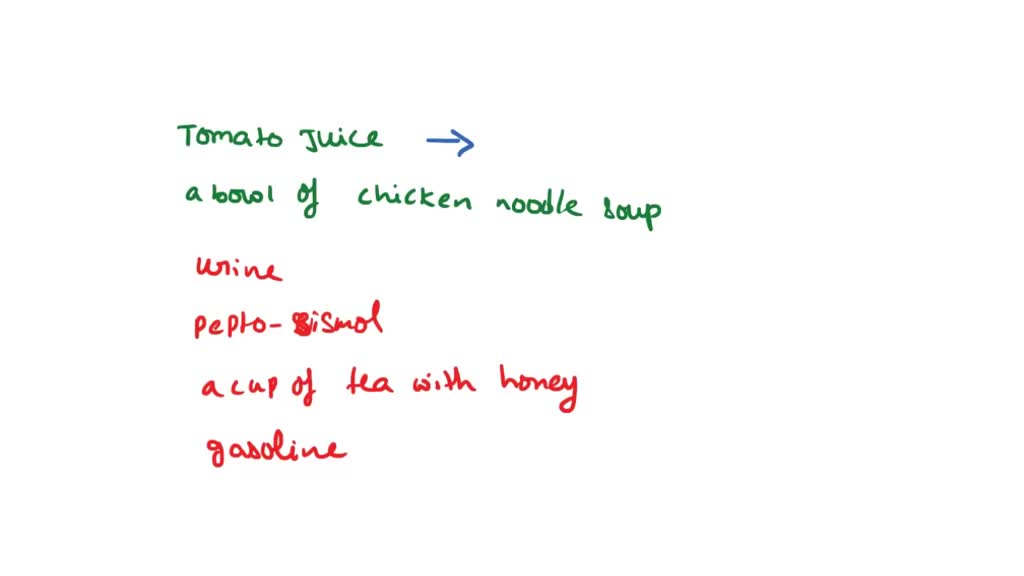 Tomato Juice →
a bowl of chicken noodle soup
urine
pepto-Bismol
a cup of tea with honey
gasoline